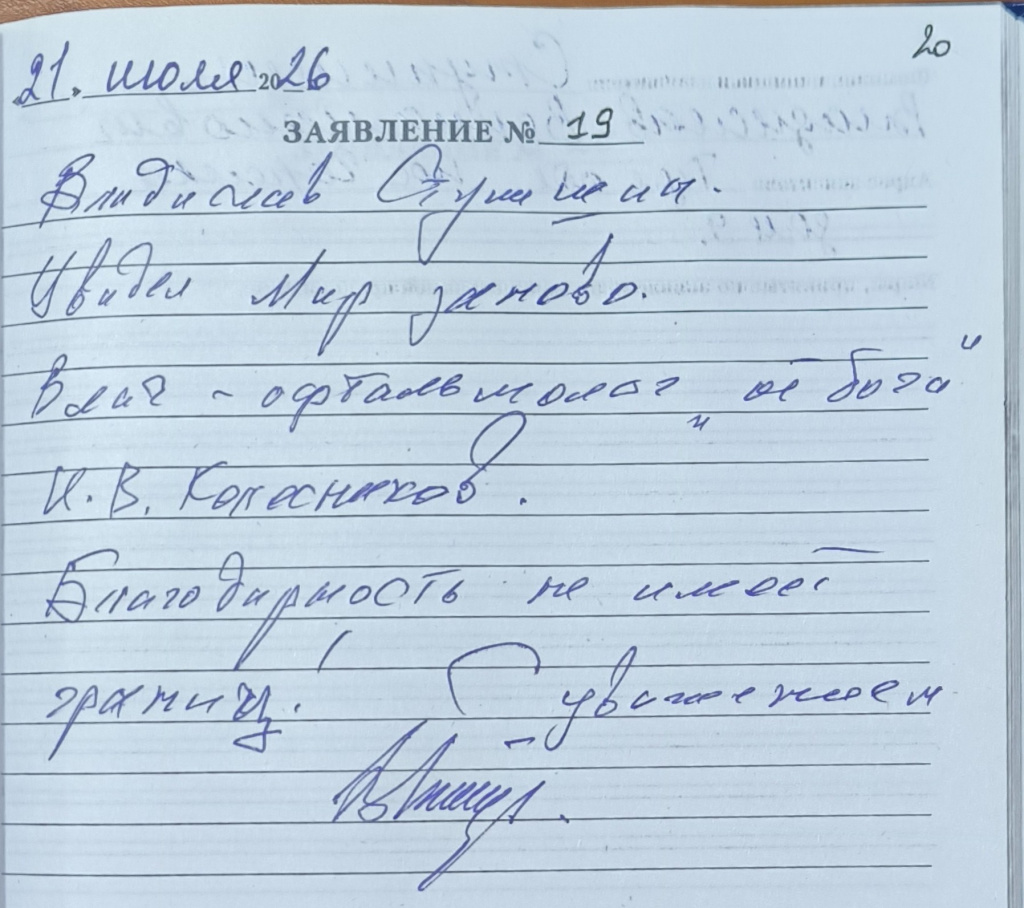 20
21. июля 2026
ЗАЯВЛЕНИЕ № 19
Владислав
Увидел Мир заново.
Врач - офтальмолог "от бога"
И. В. Колесников.
Благодарность не имеет
границ! С уважением